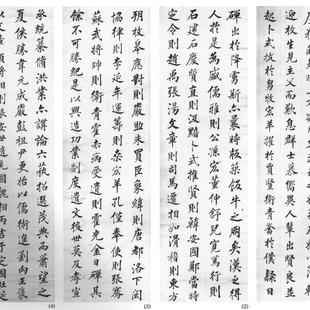 迎枚生見主父而歎息群士慕嚮異人輩出賢良並
起卜式拔於芻牧宏羊擢於賈竪衛青奮於僕隸日
磾出於降虜斯亦曩時板築飯牛之朋矣漢之得
人於是為盛儒雅則公孫宏董仲舒兒寬篤行
則石建石慶質直則汲黯卜式推賢則韓安國鄭當時
定令則趙禹張湯文章則司馬遷相如滑稽則東方
(2)
朔枚皋應對則嚴助朱買臣曆數則唐都洛下閎
協律則李延年運籌則桑宏羊奉使則張騫
蘇武將帥則衛青霍去病受遺則霍光金日磾其
餘不可勝紀是以興造功業制度遺文後世莫及孝宣
(3)
承統纂脩洪業亦講論六藝招選茂異而蕭望之
夏侯勝韋玄成嚴彭祖尹更始以儒術進劉向王褒
(4)